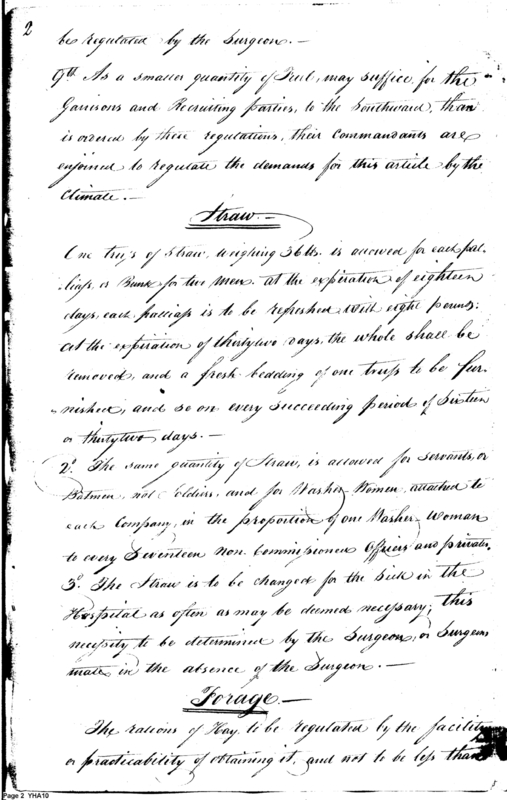 2
be regulated by the Surgeon. —
9th. As a smaller quantity of Fuel, may suffice for the
Garrisons and Recruiting parties, to the Southward, than
is ordered by these regulations, their Commandants are
enjoined to regulate the demands for this article by the
Climate. —
Straw —
One truss of Straw, weighing 36 lbs. is allowed for each pal-
-liass or Bunk for two Men. at the expiration of eighteen
days, each palliass is to be refreshed with eight pounds:
at the expiration of thirtytwo days, the whole shall be
removed, and a fresh bedding of one truss to be fur-
-nished, and so on every succeeding period of Sixteen
or thirtytwo days. —
2d. The same quantity of Straw, is allowed for Servants, or
Batmen, not Soldiers, and for Washer Women, attached to
each Company, in the proportion of one Washer Woman
to every Seventeen non Commissioned Officers and privates.
3d. The Straw is to be changed for the Sick in the
Hospital as often as may be deemed necessary; this
necessity to be determined by the Surgeon, or Surgeons
mate in the absence of the Surgeon. —
Forage —
The rations of Hay, to be regulated by the facility
or practicability of obtaining it, and not to be less than
Page 2 YHA10